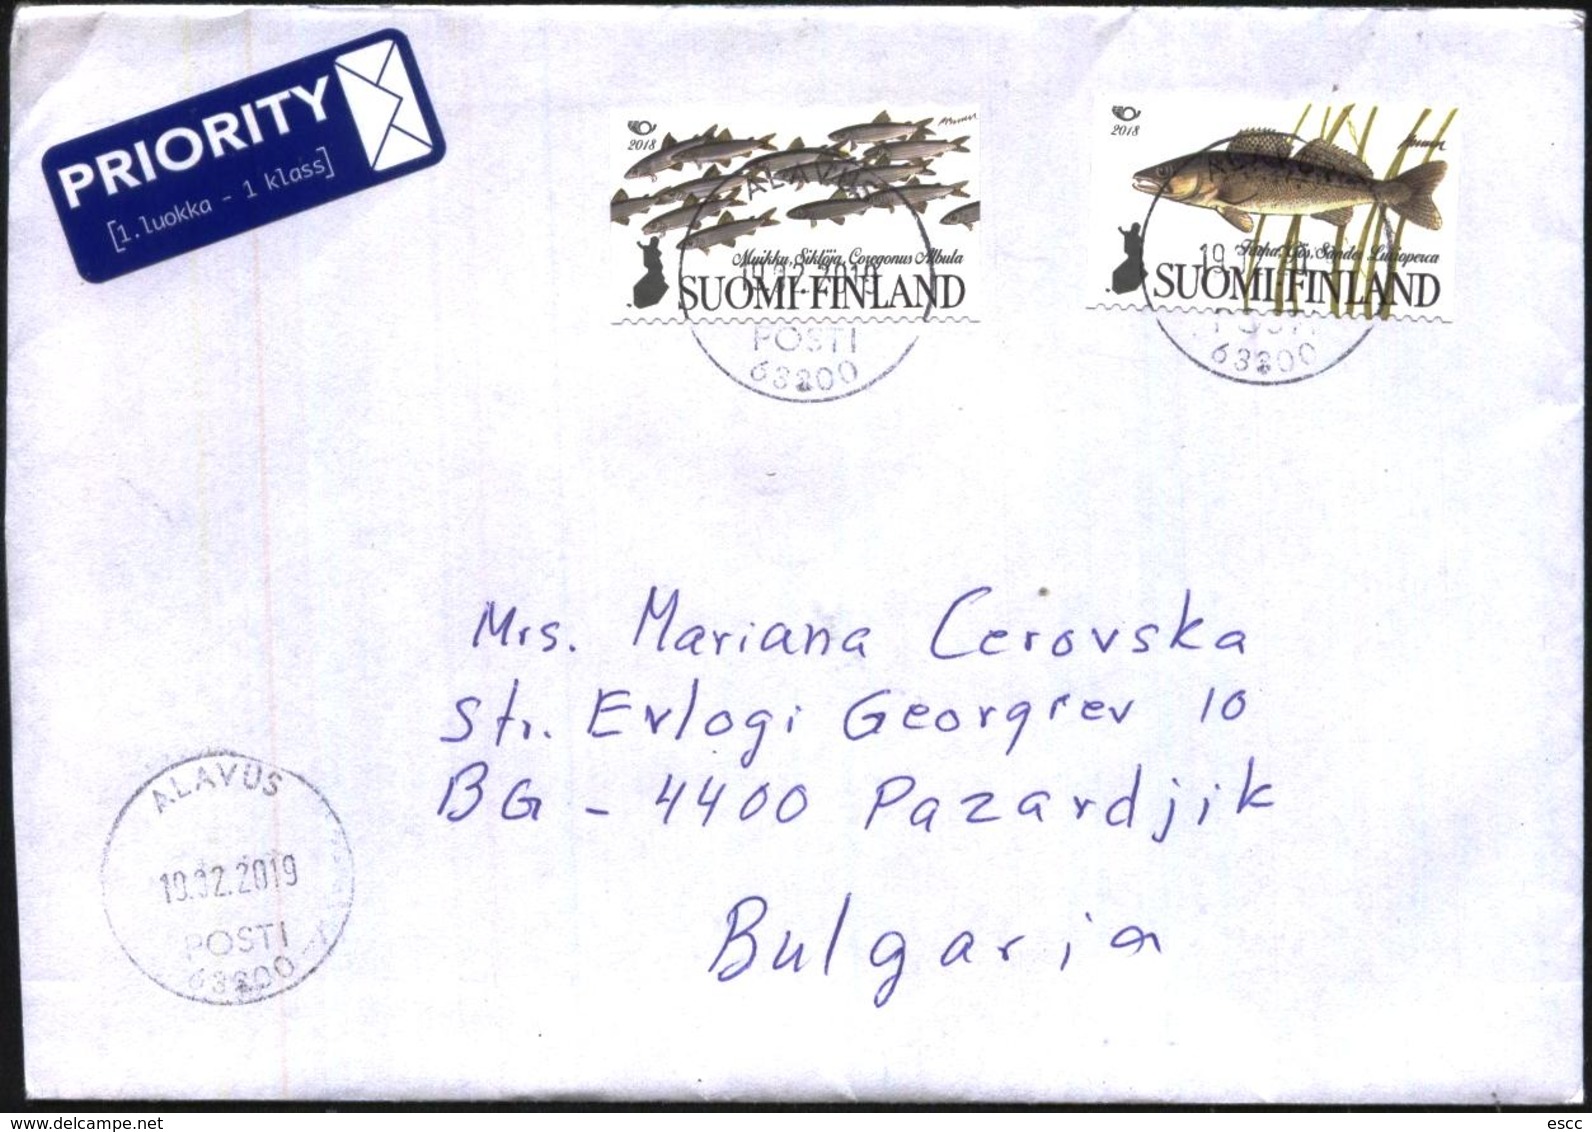 PRIORITY
[1.luokka - 1 klass]
2018
Muikku, Siklöja, Coregonus Albula
SUOMI·FINLAND
ALAVUS
19.02.2019
POSTI
63300
2018
Kuha, Gös, Sander Lucioperca
SUOMI·FINLAND
ALAVUS
POSTI
63300
Mrs. Mariana Cerovska
Str. Evlogi Georgiev 10
BG - 4400 Pazardjik
Bulgaria
ALAVUS
19.02.2019
POSTI
63300
escc